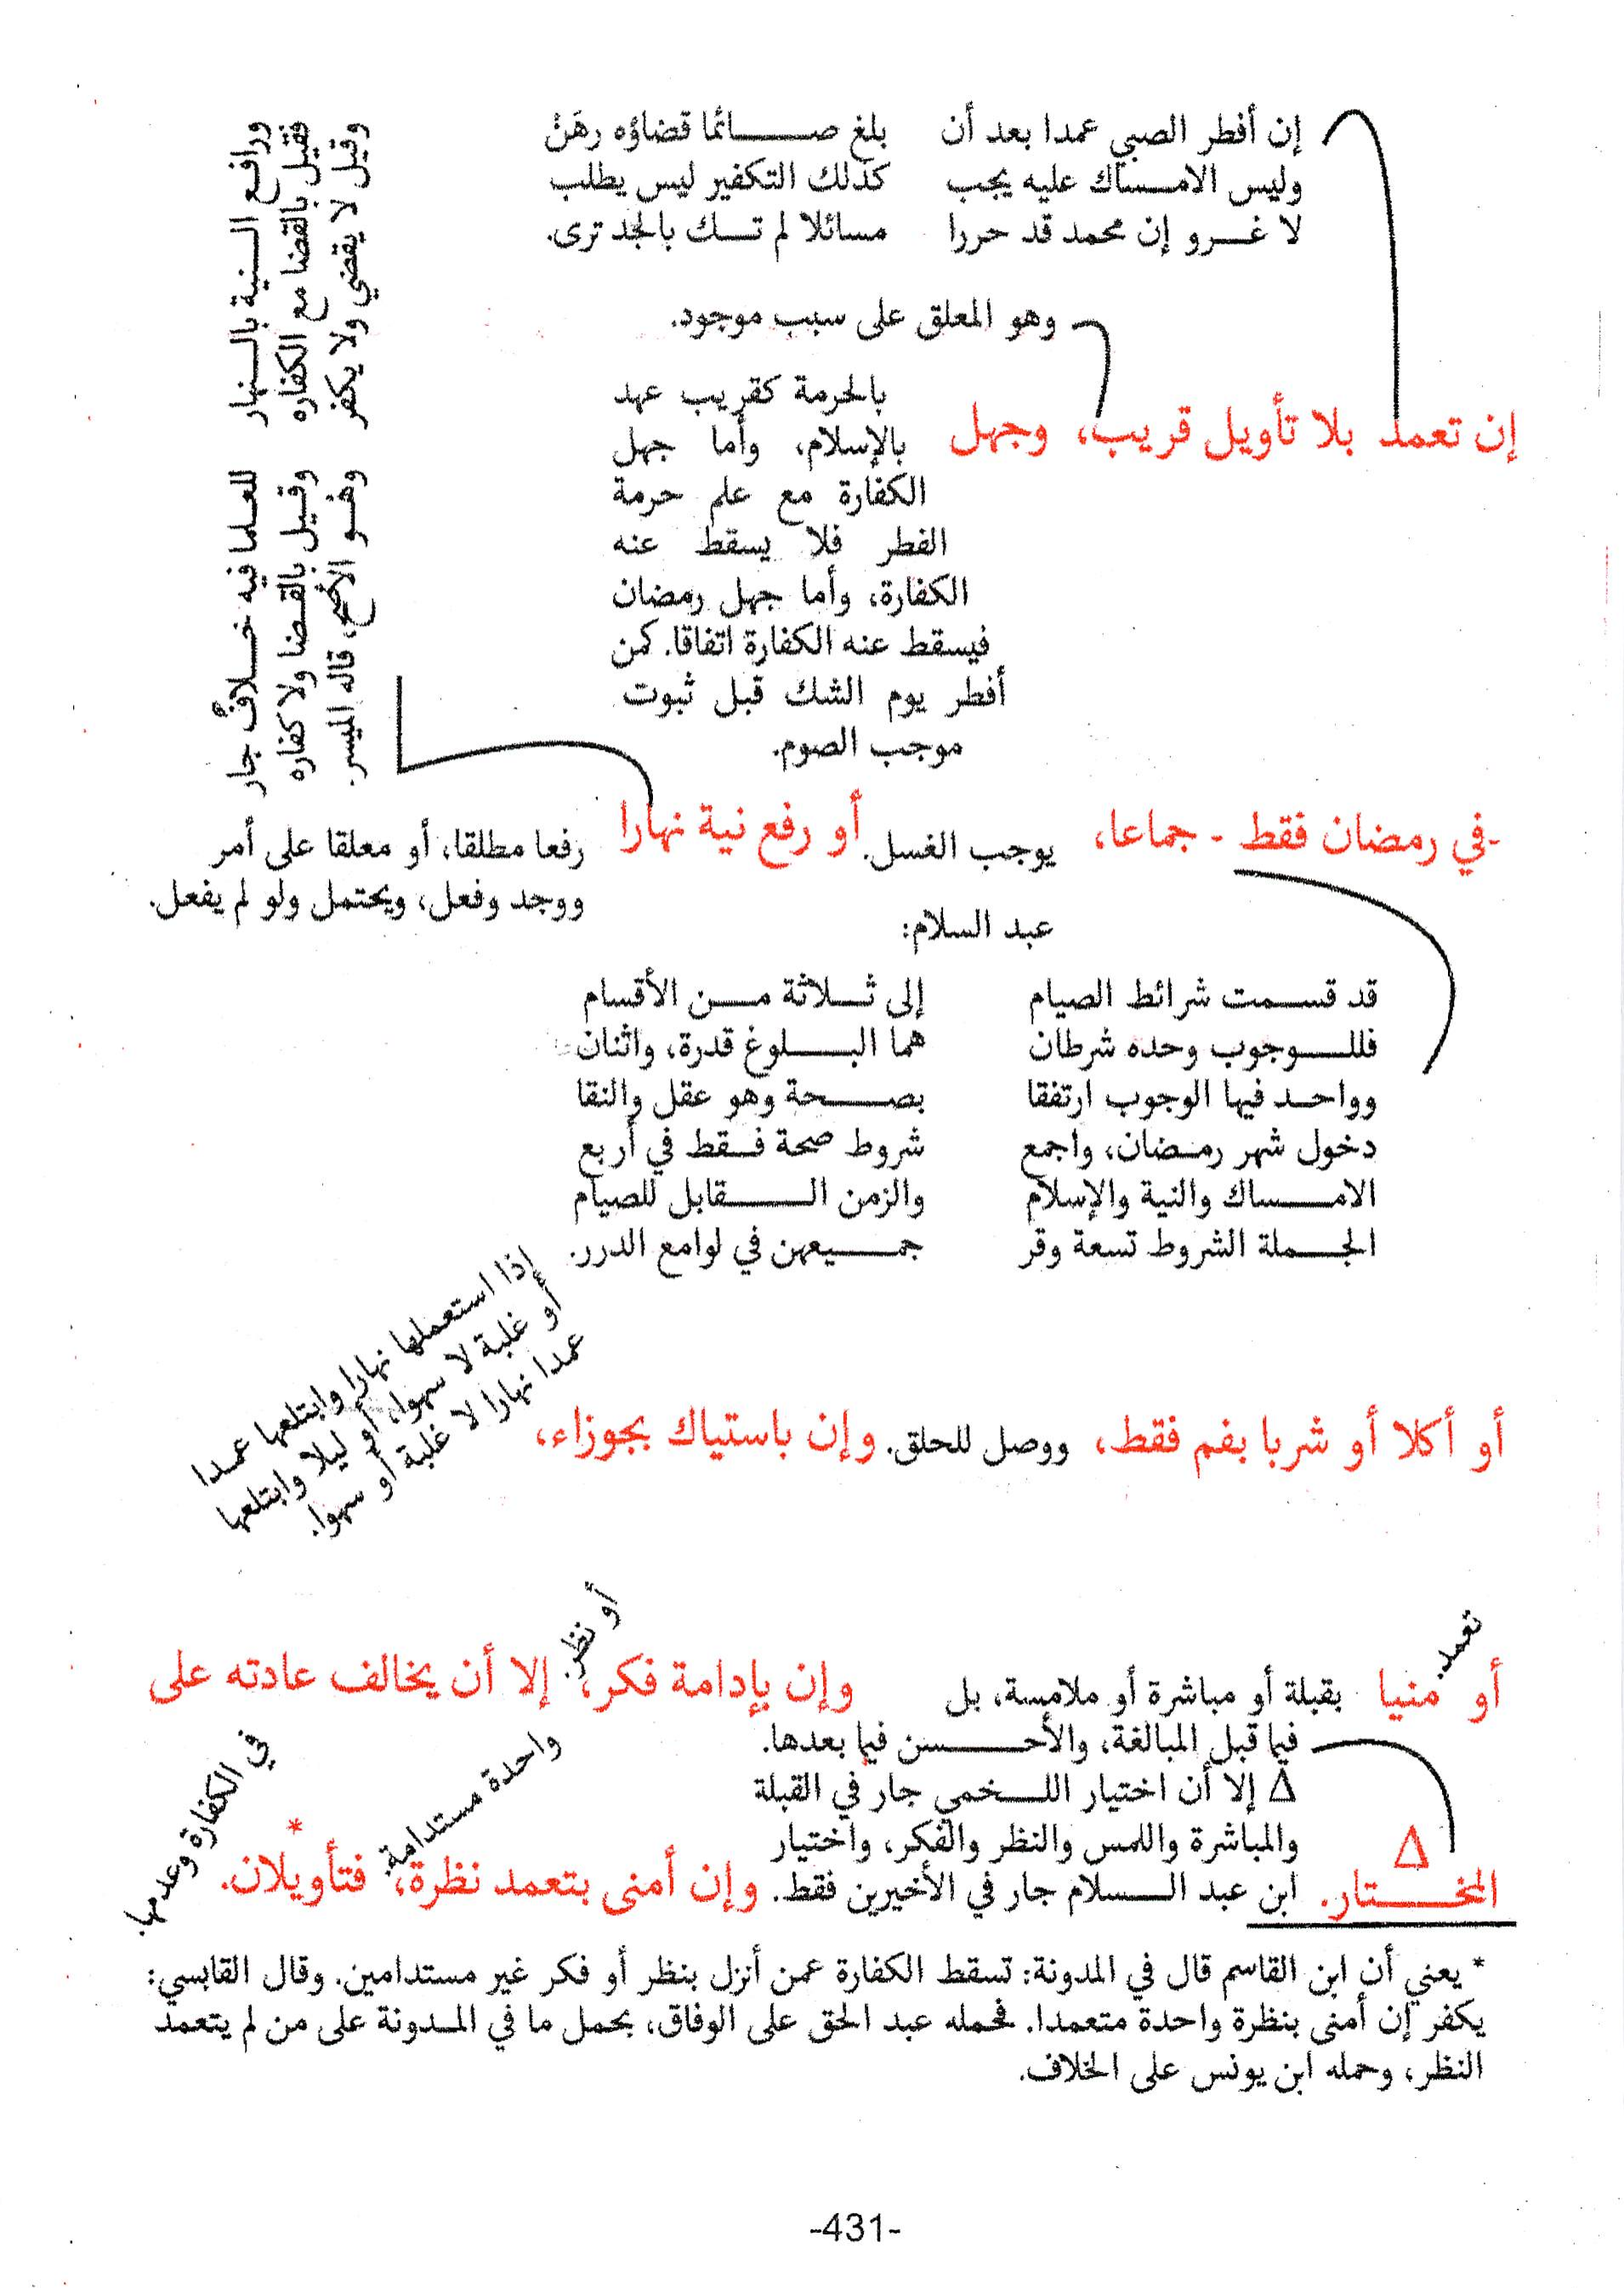 إن أفطر الصبي عمدا بعد أن بلغ صائما قضاؤه رهَنْ
وليس الامساك عليه يجب كذلك التكفير ليس يطلب
لا غرو إن محمد قد حررا مسائلا لم تك بالجد ترى.
وهو المعلق على سبب موجود.
إن تعمد بلا تأويل قريب، وجهل
بالحرمة كقريب عهد
بالإسلام، وأما جهل
الكفارة مع علم حرمة
الفطر فلا يسقط عنه
الكفارة، وأما جهل رمضان
فيسقط عنه الكفارة اتفاقا. كمن
أفطر يوم الشك قبل ثبوت
موجب الصوم.
ورافع النية بالنهار للعلما فيه خلافٌ جار
فقيل بالقضا مع الكفاره وقيل بالقضا ولا كفاره
وقيل لا يقضي ولا يكفر وهو الأصح، قاله الميسر.
-في رمضان فقط - جماعا، يوجب الغسل. أو رفع نية نهارا رفعا مطلقا، أو معلقا على أمر
ووجد وفعل، ويحتمل ولو لم يفعل.
عبد السلام:
قد قسمت شرائط الصيام إلى ثلاثة من الأقسام
فللوجوب وحده شرطان هما البلوغ قدرة، واثنان
وواحد فيها الوجوب ارتفقا بصحة وهو عقل والنقا
دخول شهر رمضان، واجمع شروط صحة فقط في أربع
الامساك والنية والإسلام والزمن القابل للصيام
الجملة الشروط تسعة وقر جميعهن في لوامع الدرر.
أو أكلا أو شربا بفم فقط، ووصل للحلق. وإن باستياك بجوزاء،
إذا استعملها نهارا وابتلعها عمدا
أو غلبة لا سهوا، أو ليلا وابتلعها
عمدا نهارا لا غلبة أو سهوا.
تعمد.
أو منيا بقبلة أو مباشرة أو ملامسة، بل وإن بإدامة فكر، إلا أن يخالف عادته على
أو نظر.
فيما قبل المبالغة، والأحسن فيما بعدها.
Δ إلا أن اختيار اللخمي جار في القبلة
والمباشرة واللمس والنظر والفكر، واختيار
ابن عبد السلام جار في الأخيرين فقط.
Δ
المختار. وإن أمنى بتعمد نظرة، فتأويلان.
واحدة مستدامة.
*
في الكفارة وعدمها.
* يعني أن ابن القاسم قال في المدونة: تسقط الكفارة عمن أنزل بنظر أو فكر غير مستدامين. وقال القابسي:
يكفر إن أمنى بنظرة واحدة متعمدا. فحمله عبد الحق على الوفاق، بحمل ما في المدونة على من لم يتعمد
النظر، وحمله ابن يونس على الخلاف.
-431-